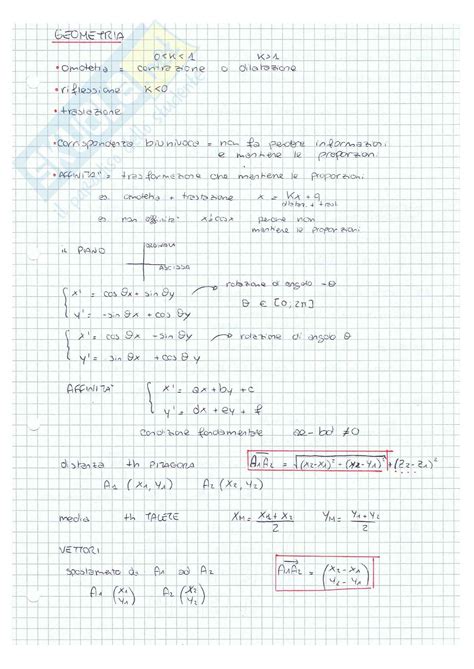 GEOMETRIA
0<K<1 K>1
• omotetia = contrazione o dilatazione
• riflessione K<0
• traslazione
• corrispondenza biunivoca = non fa perdere informazioni
e mantiene le proporzioni
• AFFINITA' = trasformazione che mantiene le proporzioni
es omotetia + traslazione x = Kx + q
dilataz. + trasl.
es non affinità x'=cosx perché non
mantiene le proporzioni
IL PIANO
ORDINATA
ASCISSA
x' = cos θx + sin θy rotazione di angolo -θ
y' = -sin θx + cos θy θ ∈ [0; 2π]
x' = cos θx - sin θy rotazione di angolo θ
y' = sin θx + cos θy
AFFINITA' x' = ax + by + c
y' = dx + ey + f
condizione fondamentale ae - bd ≠ 0
distanza th PITAGORA A₁A₂ = √(x₂-x₁)² - (x₂-y₁)² + (z₂-z₁)²
A₁ (x₁, y₁) A₂ (x₂, y₂)
media th TALETE X_M = x₁+x₂/2 Y_M = y₁+y₂/2
VETTORI
spostamento da A₁ ad A₂ A₁A₂ = (x₂-x₁ y₂-y₁)
A₁ (x₁ y₁) A₂ (x₂ y₂)